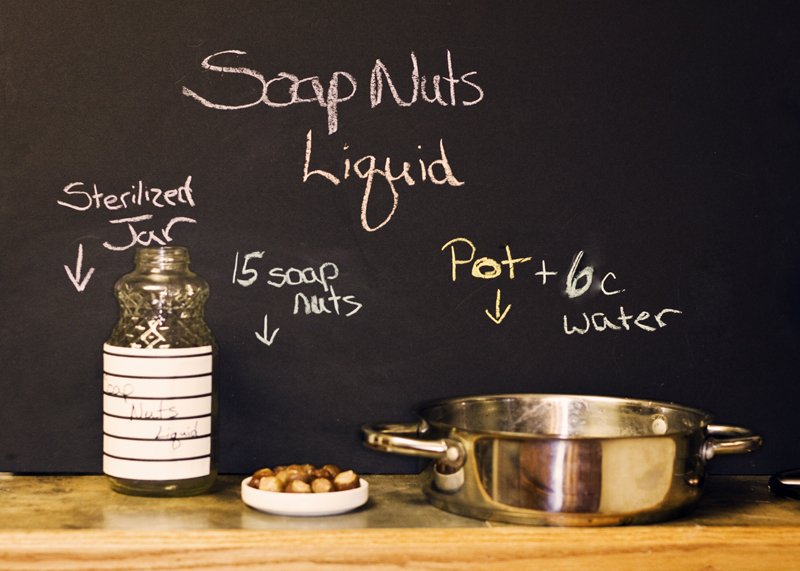 Soap Nuts
Liquid
Sterilized
Jar
15 soap
nuts
Pot + 6 c.
water
Soap
Nuts
Liquid